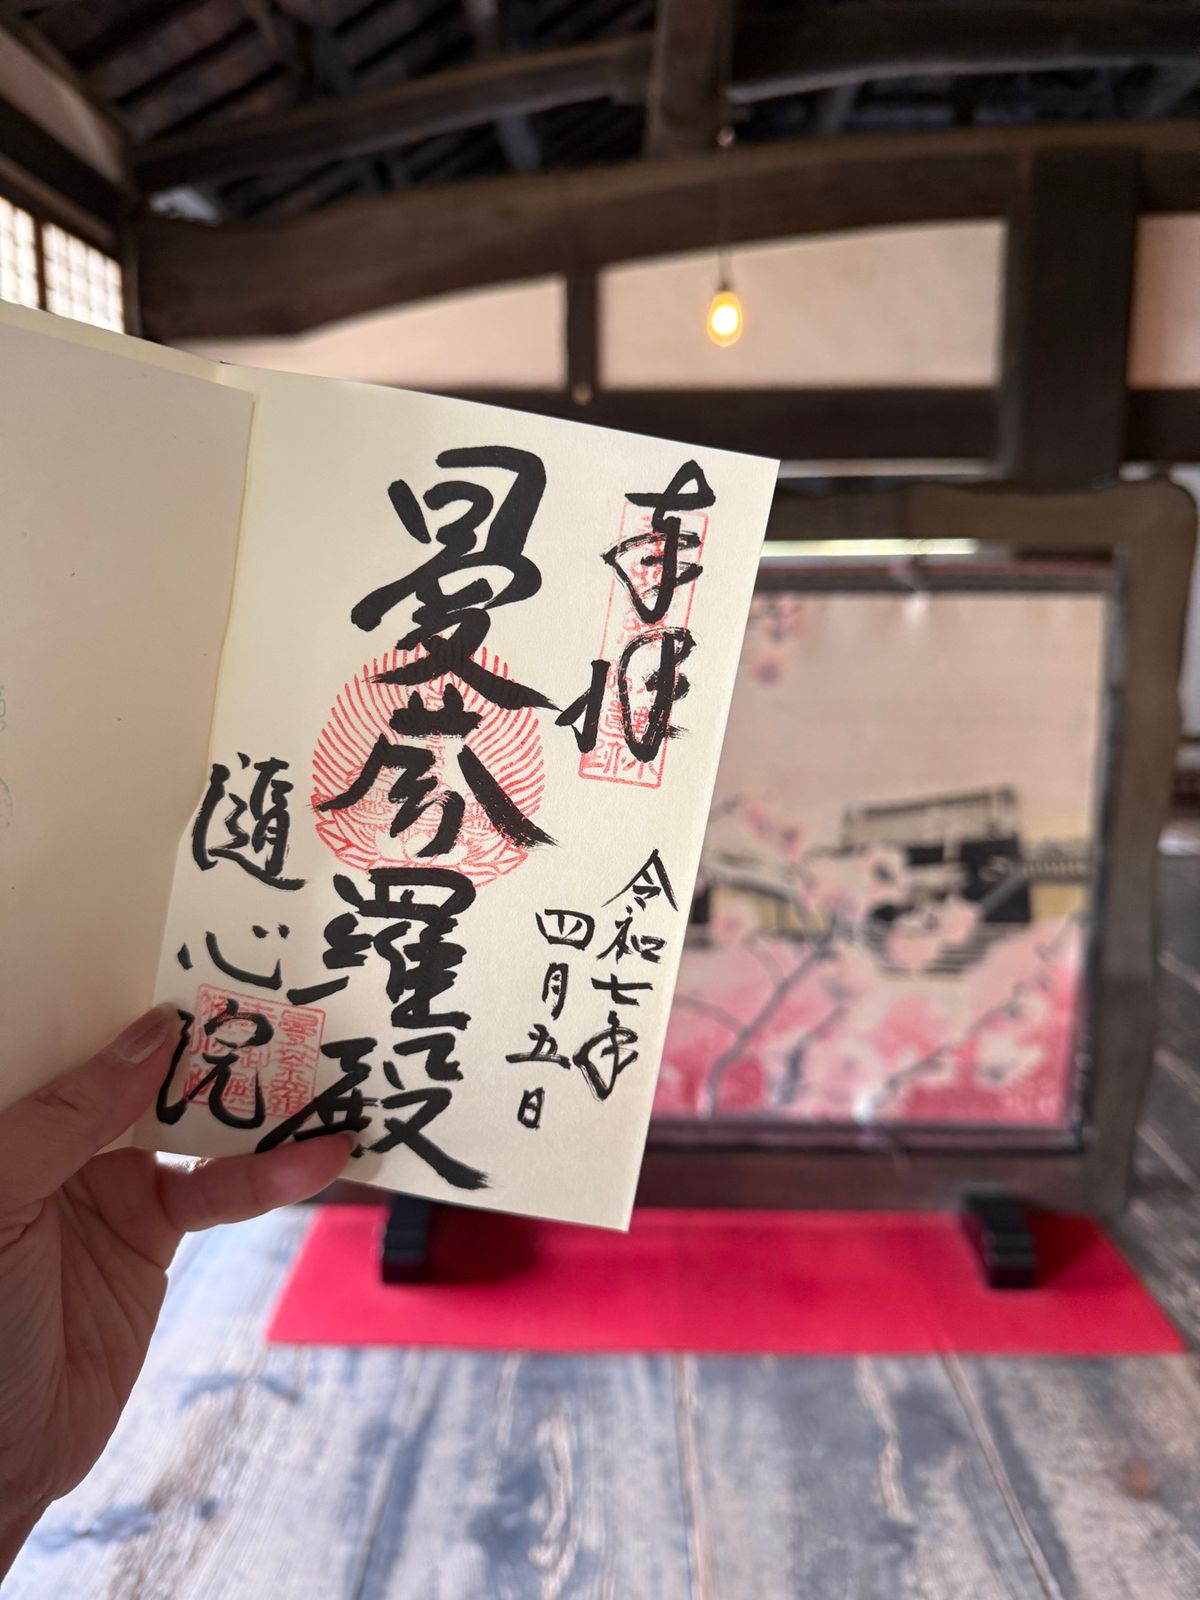 奉拝
令和七年
四月五日
曼荼羅殿
随心院